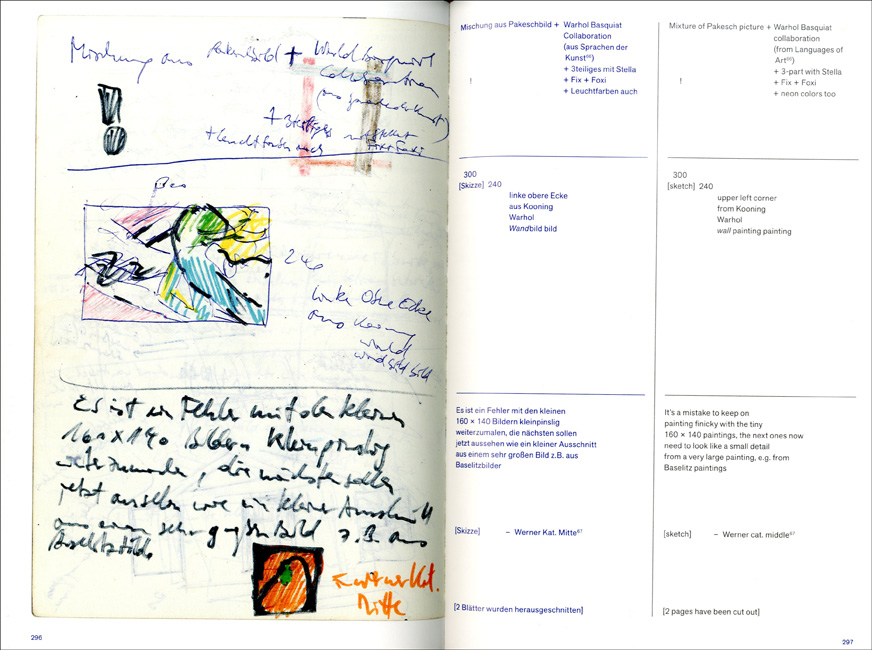 Mischung aus Pakeschbild + Warhol Basquiat
Collaboration
(aus Sprachen der Kunst)
!
+ 3teiliges mit Stella
+ Leuchtfarben auch Fix + Foxi
300
240
linke Obere Ecke
aus Kooning
Warhol
wandbild bild
Es ist ein Fehler mit den kleinen
160 x 140 Bildern kleinpinslig
weiterzumalen, die nächsten sollen
jetzt aussehen wie ein kleiner Ausschnitt
aus einem sehr großen Bild z.B. aus
Baselitzbilder
Werner Kat.
Mitte
296
Mischung aus Pakeschbild + Warhol Basquiat
Collaboration
(aus Sprachen der
Kunst⁶⁶)
! + 3teiliges mit Stella
+ Fix + Foxi
+ Leuchtfarben auch
300
[Skizze] 240
linke obere Ecke
aus Kooning
Warhol
Wandbild bild
Es ist ein Fehler mit den kleinen
160 × 140 Bildern kleinpinslig
weiterzumalen, die nächsten sollen
jetzt aussehen wie ein kleiner Ausschnitt
aus einem sehr großen Bild z.B. aus
Baselitzbilder
[Skizze] – Werner Kat. Mitte⁶⁷
[2 Blätter wurden herausgeschnitten]
Mixture of Pakesch picture + Warhol Basquiat
collaboration
(from Languages of
Art⁶⁶)
! + 3-part with Stella
+ Fix + Foxi
+ neon colors too
300
[sketch] 240
upper left corner
from Kooning
Warhol
wall painting painting
It's a mistake to keep on
painting finicky with the tiny
160 × 140 paintings, the next ones now
need to look like a small detail
from a very large painting, e.g. from
Baselitz paintings
[sketch] – Werner cat. middle⁶⁷
[2 pages have been cut out]
297